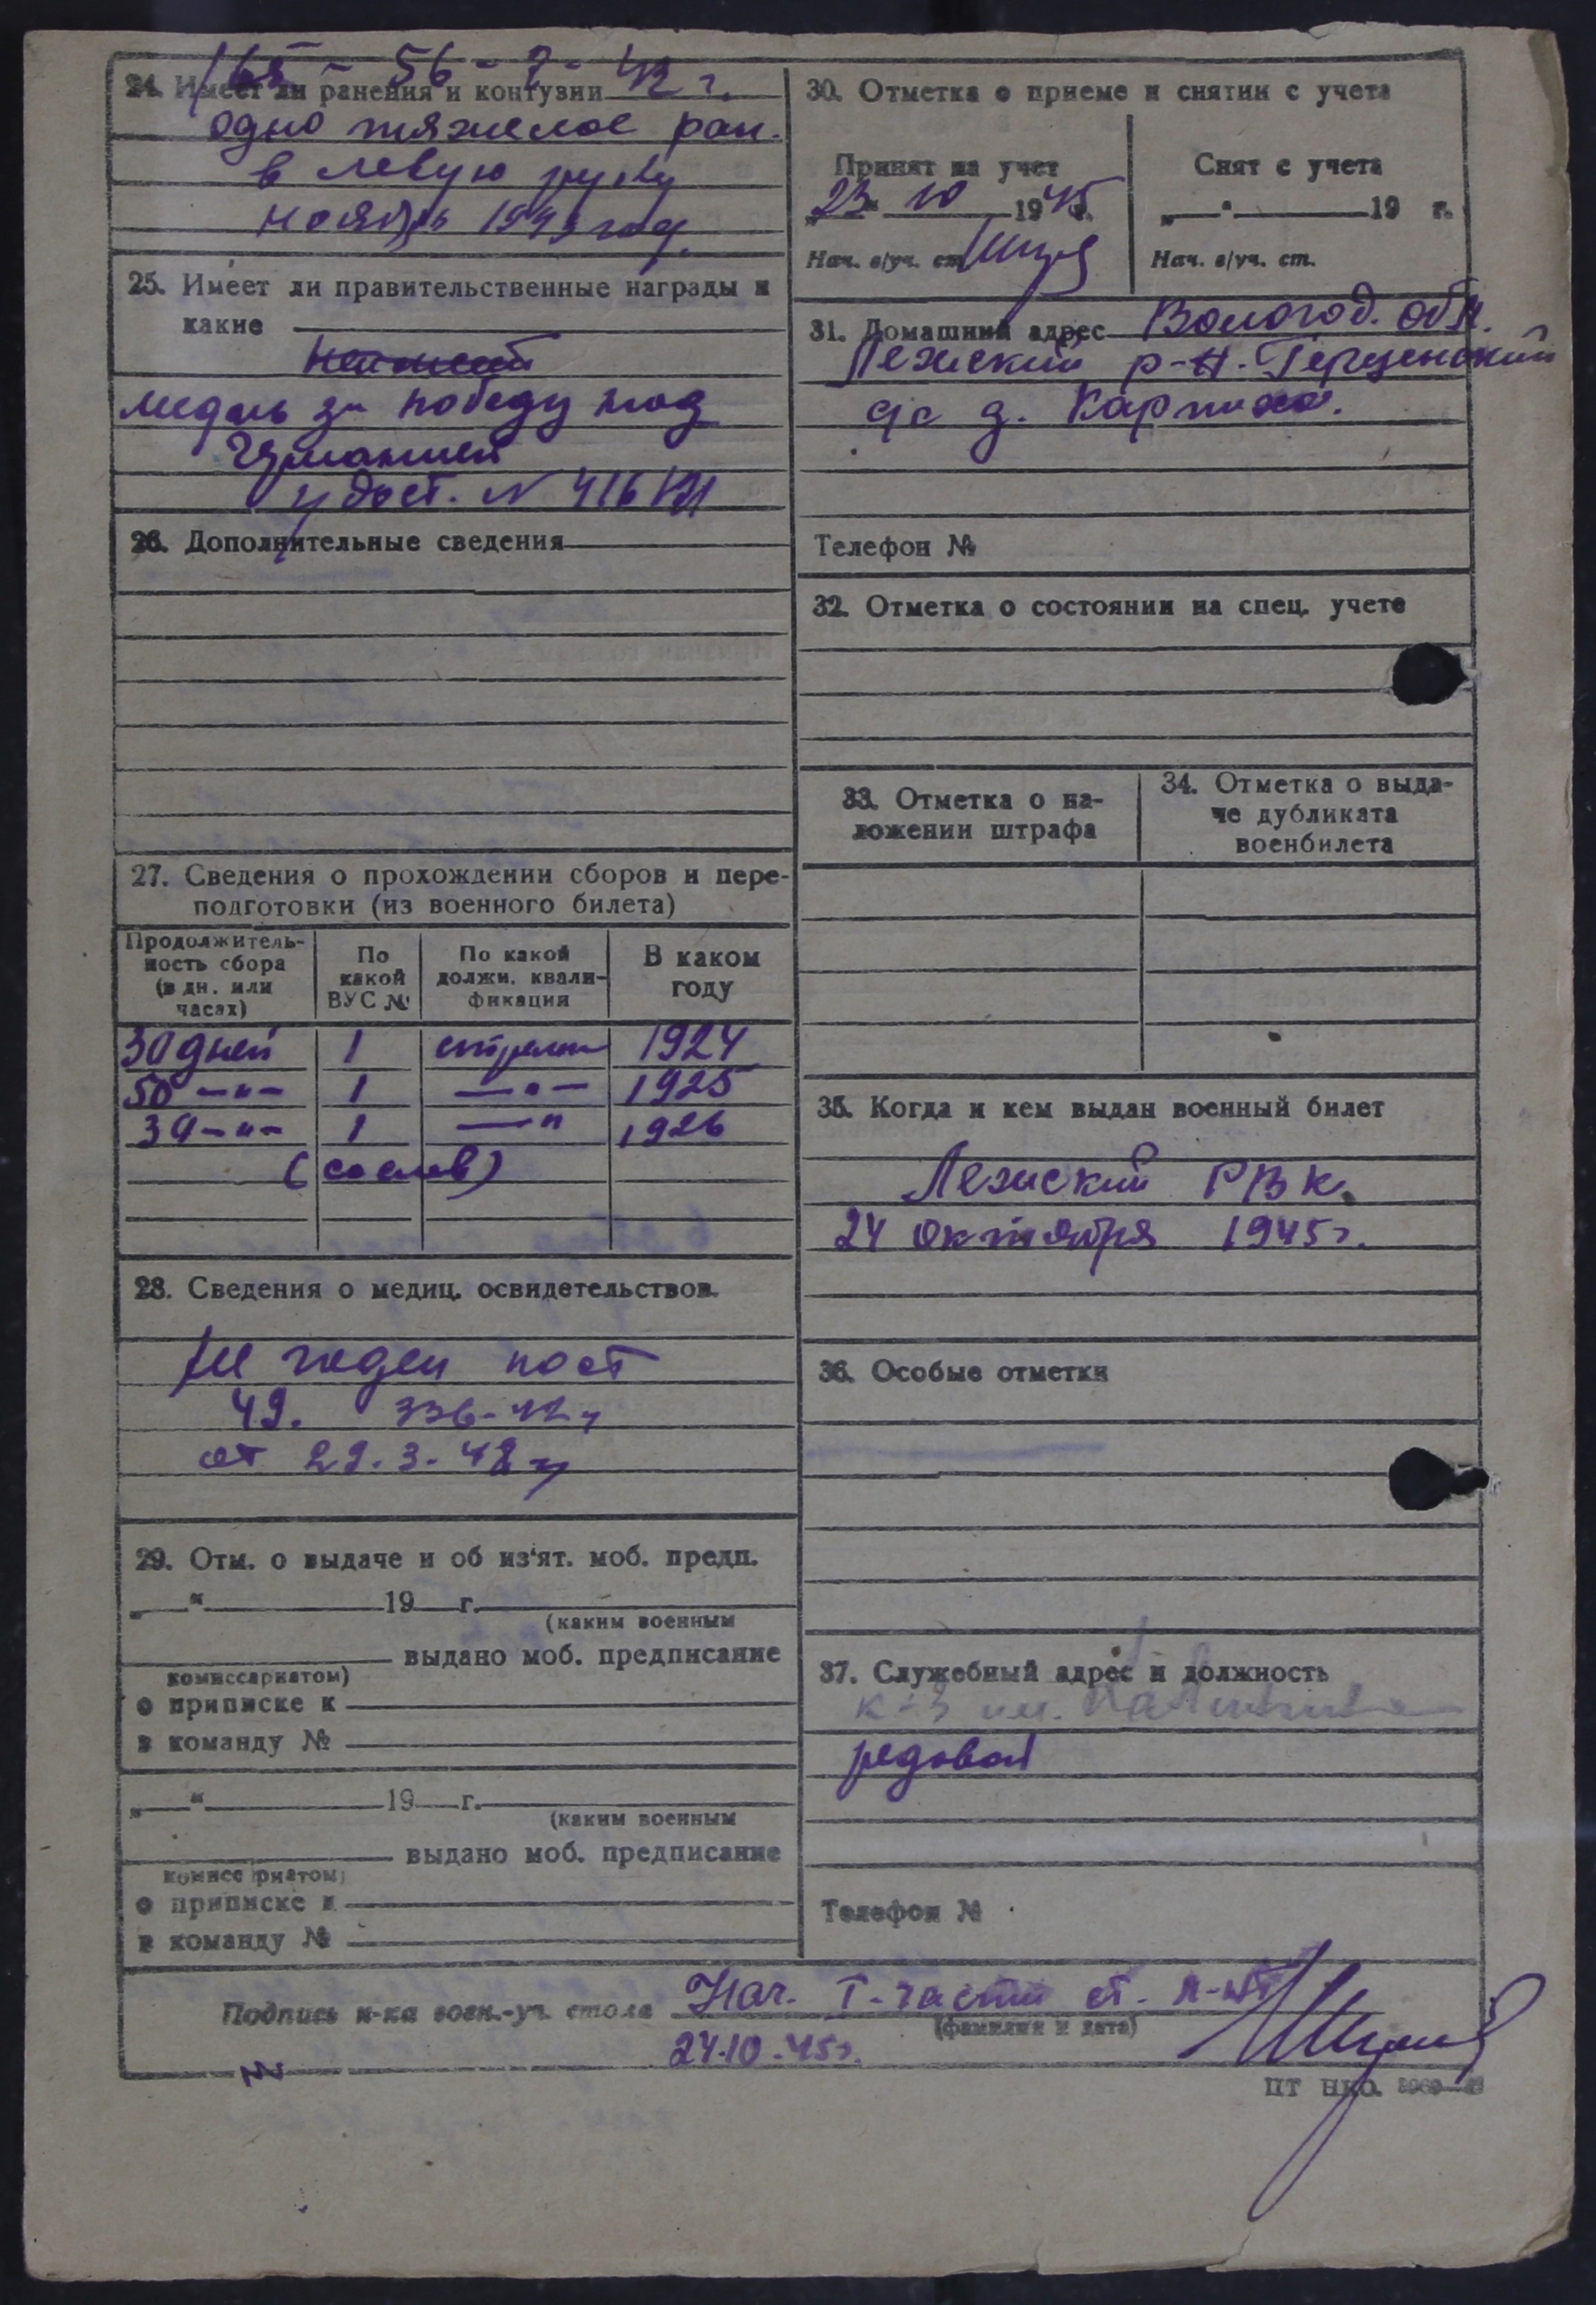 165 - 56 - 7 - 42 г.
24. Имеет ли ранения и контузии
одно тяжелое ран.
в левую руку
ноябрь 1943 год.
25. Имеет ли правительственные награды и
какие
медаль за победу над
Германией
удост. N
26. Дополнительные сведения
27. Сведения о прохождении сборов и пере-
подготовки (из военного билета)
Продолжитель-
ность сбора
(в дн. или
часах)
По
какой
ВУС №
По какой
должн. квали-
фикация
В каком
году
30 дней 1 стрелок 1924
50 —"— 1 —"— 1925
30 —"— 1 —" 1926
(со слов)
28. Сведения о медиц. освидетельствов.
Не годен пост
49. 336-42 г
от 29.3.48 г
29. Отм. о выдаче и об из'ят. моб. предп.
„ “ 19 г.
(каким военным
выдано моб. предписание
комиссариатом)
о приписке к
в команду №
„ “ 19 г.
(каким военным
выдано моб. предписание
комиссариатом)
о приписке к
в команду №
30. Отметка о приеме и снятии с учета
Принят на учет
„23“ 10 1945 г.
Нач. в/уч. ст.
Снят с учета
„ “ 19 г.
Нач. в/уч. ст.
31. Домашний адрес Вологод. обл.
Лежский р-н. Герценский
с/с д. Карпово.
Телефон №
32. Отметка о состоянии на спец. учете
33. Отметка о на-
ложении штрафа
34. Отметка о выда-
че дубликата
военбилета
35. Когда и кем выдан военный билет
Лежский РВК.
24 октября 1945 г.
36. Особые отметки
37. Служебный адрес и должность
к-з им.
рядовой
Телефон №
Подпись н-ка воен.-уч. стола Нач. I-части ст. л-нт
(фамилия и дата)
24.10.45 г.
ЦТ НКО.